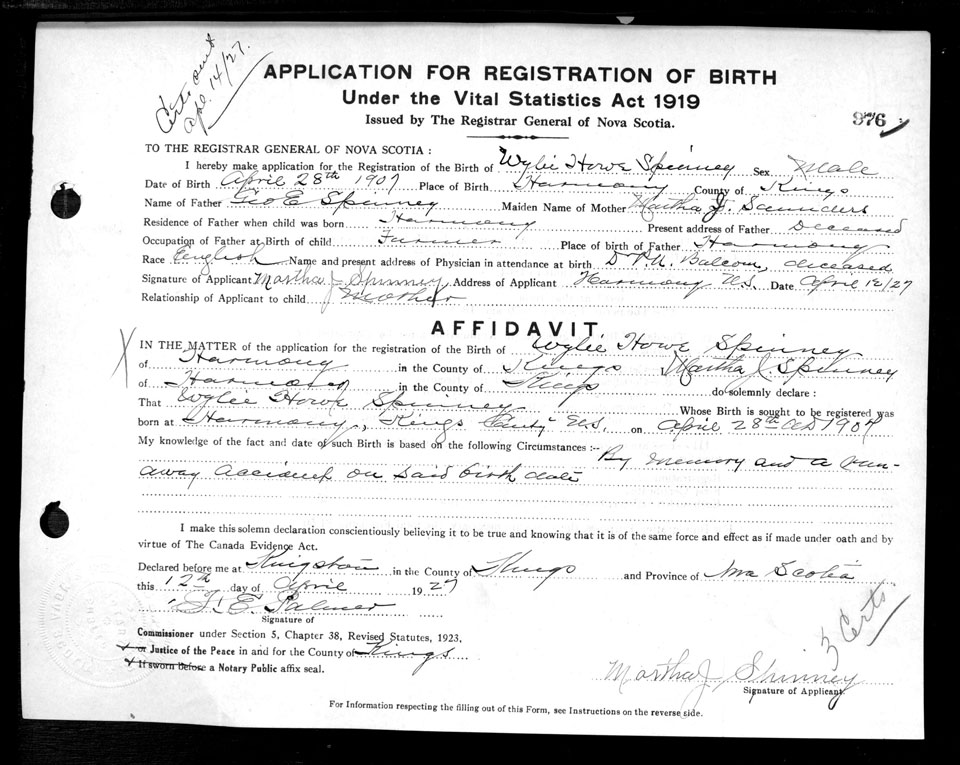 Certs sent
Apl. 14/27.
APPLICATION FOR REGISTRATION OF BIRTH
Under the Vital Statistics Act 1919
Issued by The Registrar General of Nova Scotia.
376
TO THE REGISTRAR GENERAL OF NOVA SCOTIA :
I hereby make application for the Registration of the Birth of Wylie Howe Spinney Sex Male
Date of Birth April 28th 1907 Place of Birth Harmony County of Kings
Name of Father Geo E Spinney Maiden Name of Mother Martha J. Saunders
Residence of Father when child was born Harmony Present address of Father Deceased
Occupation of Father at Birth of child Farmer Place of birth of Father Harmony
Race English Name and present address of Physician in attendance at birth Balcom, deceased
Signature of Applicant Martha J Spinney Address of Applicant Harmony N.S. Date April 12/27
Relationship of Applicant to child Mother
AFFIDAVIT.
IN THE MATTER of the application for the registration of the Birth of Wylie Howe Spinney
of Harmony in the County of Kings Martha J. Spinney
of Harmony in the County of Kings do solemnly declare :
That Wylie Howe Spinney Whose Birth is sought to be registered was
born at Harmony, Kings County N.S. on April 28th AD 1907
My knowledge of the fact and date of such Birth is based on the following Circumstances :-- By memory and a run-
away accident on said birth date
I make this solemn declaration conscientiously believing it to be true and knowing that it is of the same force and effect as if made under oath and by
virtue of The Canada Evidence Act.
Declared before me at Kingston in the County of Kings and Province of Nova Scotia
this 12th day of April 1927
E. Palmer
Signature of
Commissioner under Section 5, Chapter 38, Revised Statutes, 1923,
or Justice of the Peace in and for the County of Kings
If sworn before a Notary Public affix seal.
3 Certs
Martha J. Spinney
Signature of Applicant
For Information respecting the filling out of this Form, see Instructions on the reverse side.